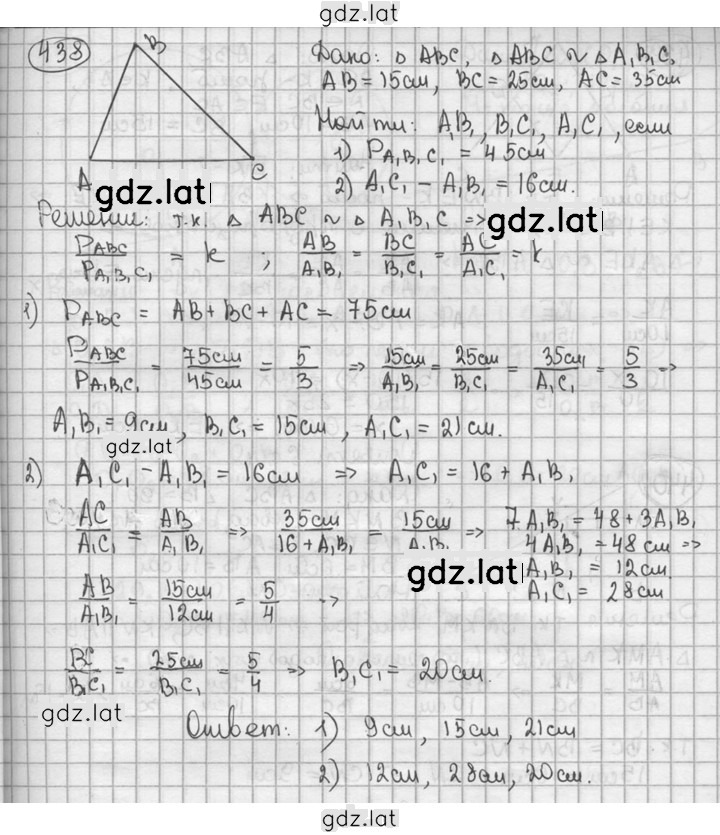 gdz.lat
438
B
A
C
Дано: △ ABC, △ ABC ~ △ A₁B₁C₁
AB = 15см, BC = 25см, AC = 35см
Найти: A₁B₁, B₁C₁, A₁C₁, если
1) P_A₁B₁C₁ = 45см
2) A₁C₁ - A₁B₁ = 16см.
gdz.lat
gdz.lat
Решение: т.к. △ ABC ~ △ A₁B₁C =>
P_ABC / P_A₁B₁C₁ = k ; AB / A₁B₁ = BC / B₁C₁ = AC / A₁C₁ = k
1) P_ABC = AB + BC + AC = 75см
P_ABC / P_A₁B₁C₁ = 75см / 45см = 5 / 3 => 15см / A₁B₁ = 25см / B₁C₁ = 35см / A₁C₁ = 5 / 3 =>
A₁B₁ = 9см, B₁C₁ = 15см, A₁C₁ = 21см.
gdz.lat
2) A₁C₁ - A₁B₁ = 16см => A₁C₁ = 16 + A₁B₁
AC / A₁C₁ = AB / A₁B₁ => 35см / 16 + A₁B₁ = 15см / A₁B₁ => 7A₁B₁ = 48 + 3A₁B₁
4A₁B₁ = 48см =>
gdz.lat
A₁B₁ = 12см
A₁C₁ = 28см
AB / A₁B₁ = 15см / 12см = 5 / 4 =>
BC / B₁C₁ = 25см / B₁C₁ = 5 / 4 => B₁C₁ = 20см.
gdz.lat
Ответ: 1) 9см, 15см, 21см
2) 12см, 28см, 20см.
gdz.lat